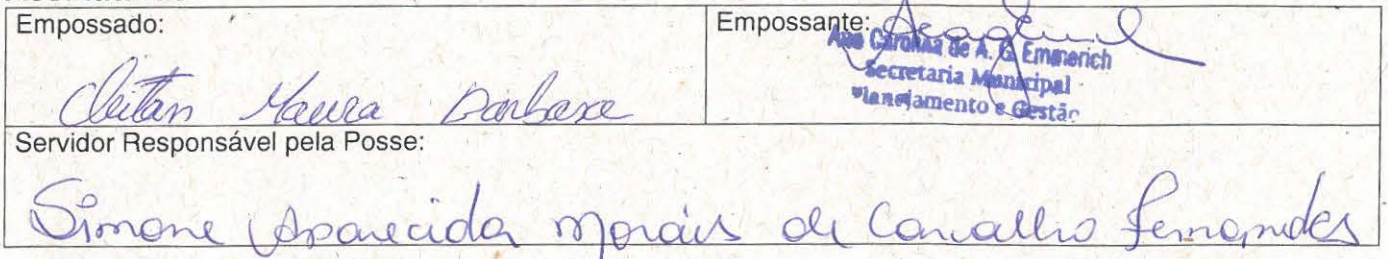 Empossado:
Empossante:
Ana Carolina de A. G. Emmerich
Secretaria Municipal
Planejamento e Gestão
Servidor Responsável pela Posse:
Simone Aparecida Morais de Carvalho Fernandes